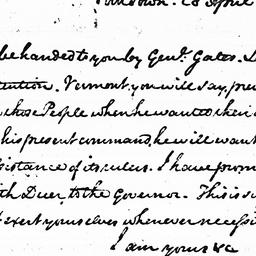 be handed to you by Genl. Gates.
tention. Vermont, you will say, pre
those People when he wanted their
his present command, he will want
sistance of its rulers. I have prom
th Duer, to the Governor. This is
exert yourselves whenever necessi
I am yours &c